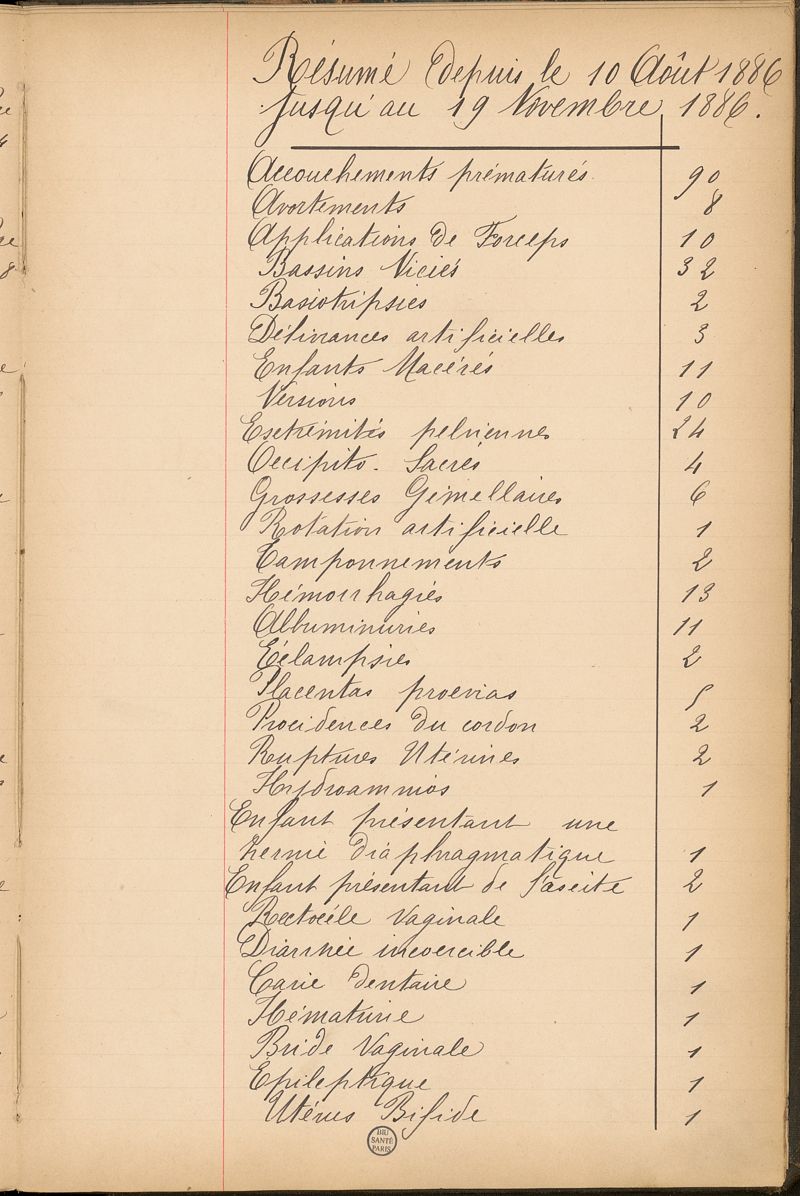 Résumé depuis le 10 Août 1886
jusqu'au 19 Novembre 1886.
Accouchements prématurés 90
Avortements 8
Applications de Forceps 10
Bassins Viciés 32
Basiotripsies 2
Délivrances artificielles 3
Enfants Macérés 11
Versions 10
Extrémités pelviennes 24
Occipito-Sacrés 4
Grossesses Gémellaires 6
Rotation artificielle 1
Tamponnements 2
Hémorrhagiés 13
Albuminuries 11
Eclampsies 2
Placentas proevias 5
Procidences du cordon 2
Ruptures Utérines 2
Hydroamnios 1
Enfant présentant une
hernie diaphragmatique 1
Enfant présentant de l'ascite 2
Rectocèle Vaginale 1
Diarrhée incoercible 1
Carie dentaire 1
Hématurie 1
Bride Vaginale 1
Epileptique 1
Utérus Bifide 1
BIU
SANTÉ
PARIS